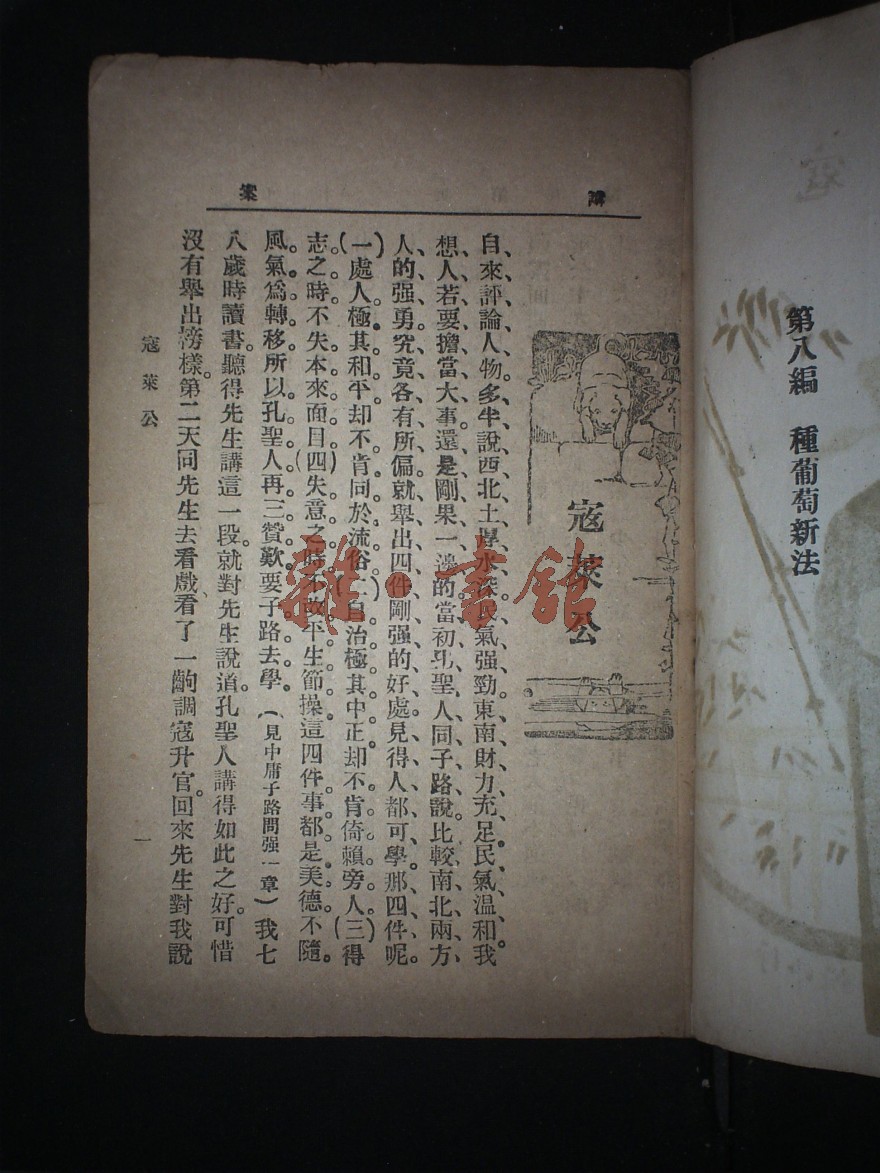 第八編　種葡萄新法
寇萊公
自、來、評、論、人、物。多、半、說、西、北、土、厚、水、深。民、氣、强、勁。東、南、財、力、充、足。民、氣、溫、和。我、
想、人、若、要、擔、當、大、事。還、是、剛、果、一、邊、的。當、初、孔、聖、人、同、子、路、說。比、較、南、北、兩、方、
人、的、强、勇。究、竟、各、有、所、偏。就、舉、出、四、件、剛、强、的、好、處。見、得、人、都、可、學。那、四、件、呢。
(一)處人極其和平却不肯同於流俗。(二)自治極其中正却不肯倚賴旁人。(三)得
志之時不失本來面目。(四)失意之時不改平生節操。這四件事都是美德不隨
風氣爲轉移所以孔聖人再三贊歎要子路去學。(見中庸子路問强一章)我七
八歲時讀書。聽得先生講這一段。就對先生說道。孔聖人講得如此之好。可惜
沒有舉出榜樣。第二天同先生去看戲。看了一齣調寇升官。回來先生對我說
寇萊公
一
雜·書館